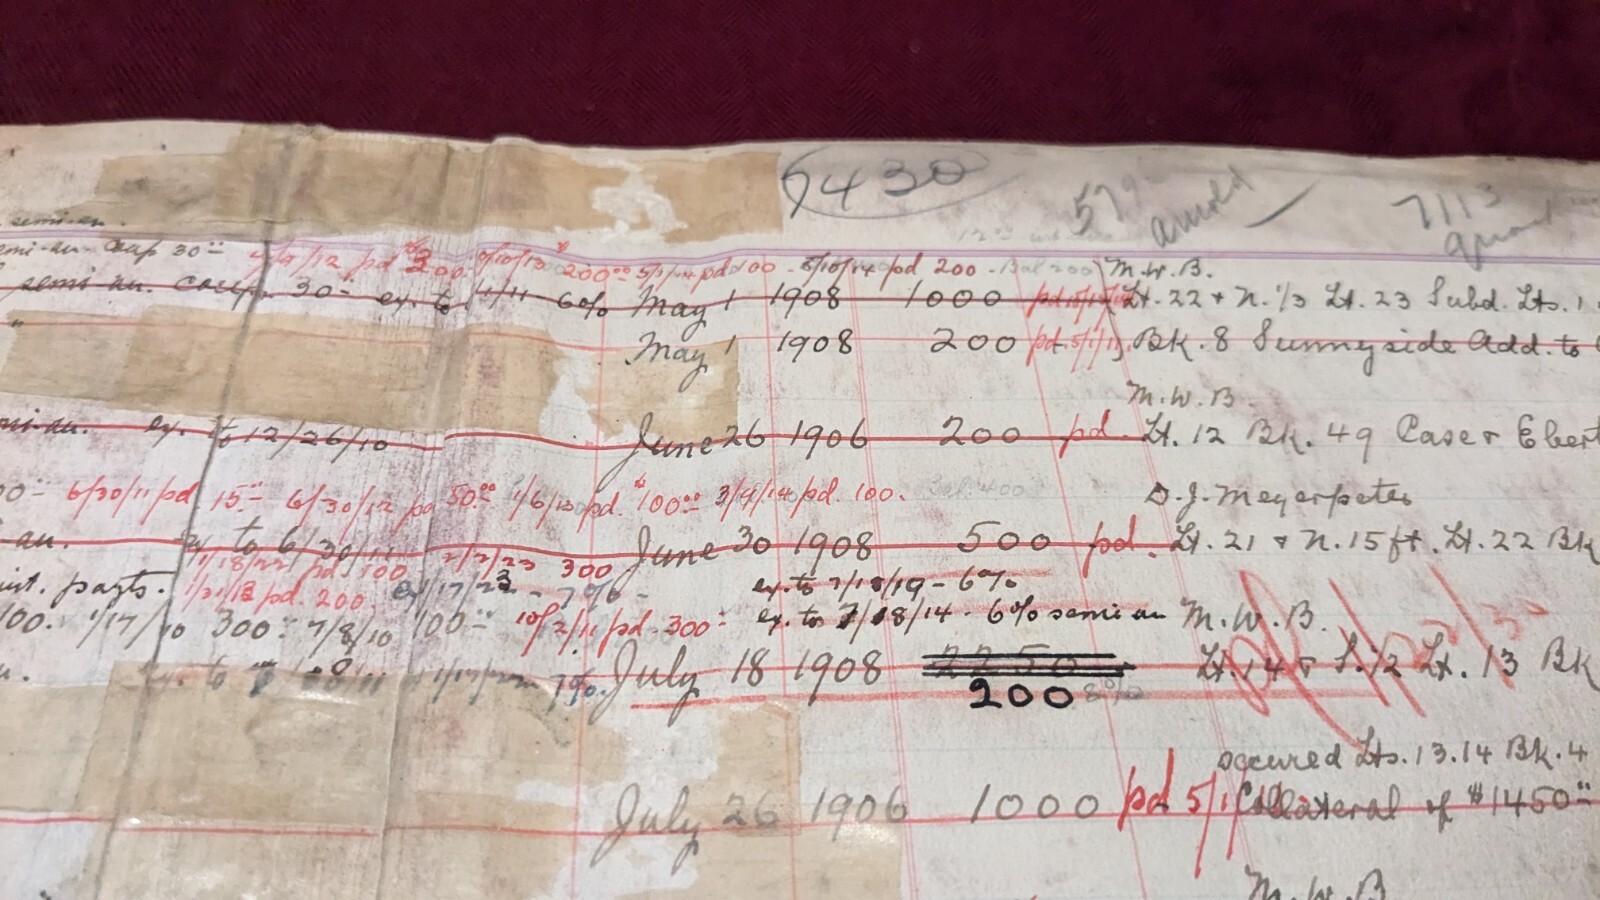 7430
579
Arnold
7113
semi-an.
semi-an. Coup 30 4/9/12 pd 200 200 5/1/14 pd 100 5/10/14 pd 200 Bal 200 M.W.B.
semi an. coup. 30 ex. to 4/11 6% May 1 1908 1000 Lt. 22 + N. 1/3 Lt. 23 Subd. Lts. 1
" May 1 1908 200 pd. 5/1/11 Bk. 8 Sunnyside Add. to
M.W.B.
ex. to 12/26/10 June 26 1906 200 pd. Lt. 12 Bk. 49 Case & Ebert
6/30/11 pd 15 6/30/12 pd 50 1/6/13 pd. $100 3/4/14 pd. 100. Bal. 400 D.J. Meyerpeter
an. ex to 6/30/11 June 30 1908 500 pd. Lt. 21 & N. 15 ft. Lt. 22 Bk
pd 100 2/2/23 300
int. payts. pd. 200 1/17/23 - 7% - ex. to 7/18/19 - 6%
100. 1/17/10 300 7/8/10 100 10/2/11 pd 300 ex. to 7/18/14 - 6% semi an M.W.B.
7%. July 18 1908 2250 Lt. 14 & S. 1/2 Lt. 13 Bk
200 8%
secured Lts. 13.14 Bk. 4
July 26 1906 1000 pd 5/1 Collateral of $1450
M.W.B